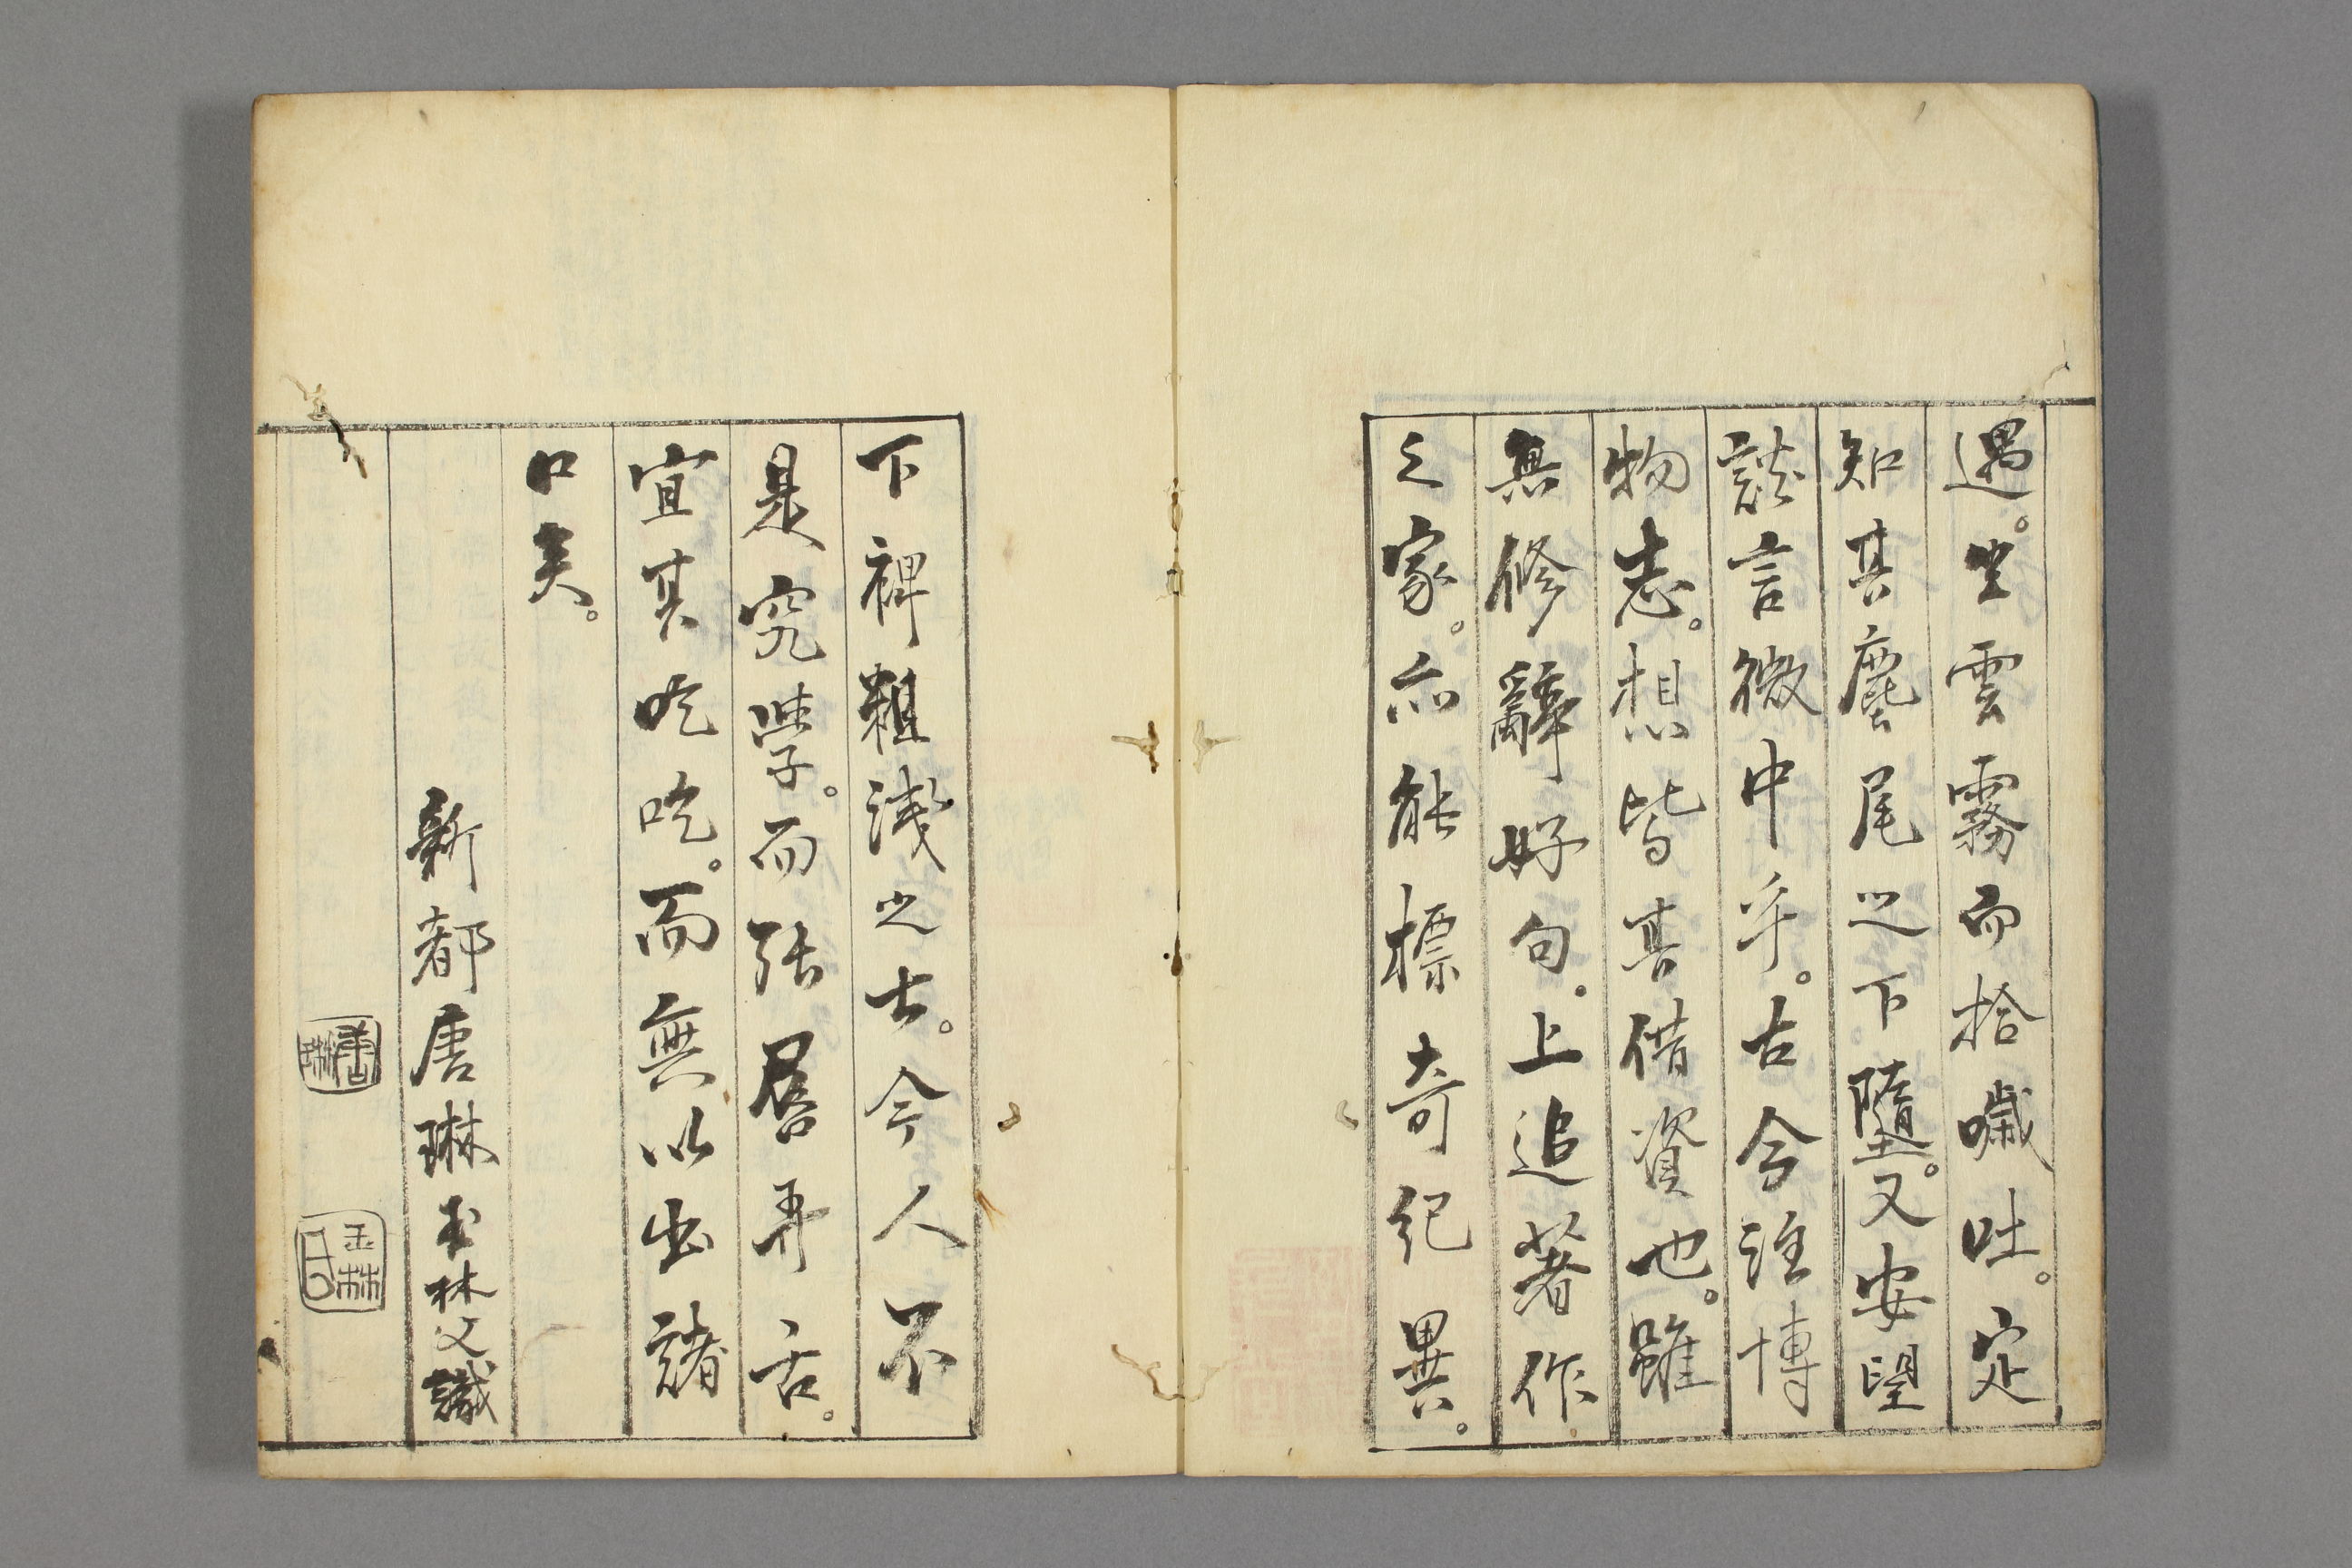 遇。坐雲霧而拾囈吐。定
知其麈尾之下墮。又安望
談言微中乎。古今註博
物志。想皆其借資也。雖
無修辭好句。上追著作
之家。亦能標奇紀異。
下裨粗淺之士。今人不
是究學。而張唇弄舌。
宜其吃吃。而無以出諸
口矣。
新都唐琳玉林父識
唐琳
玉林